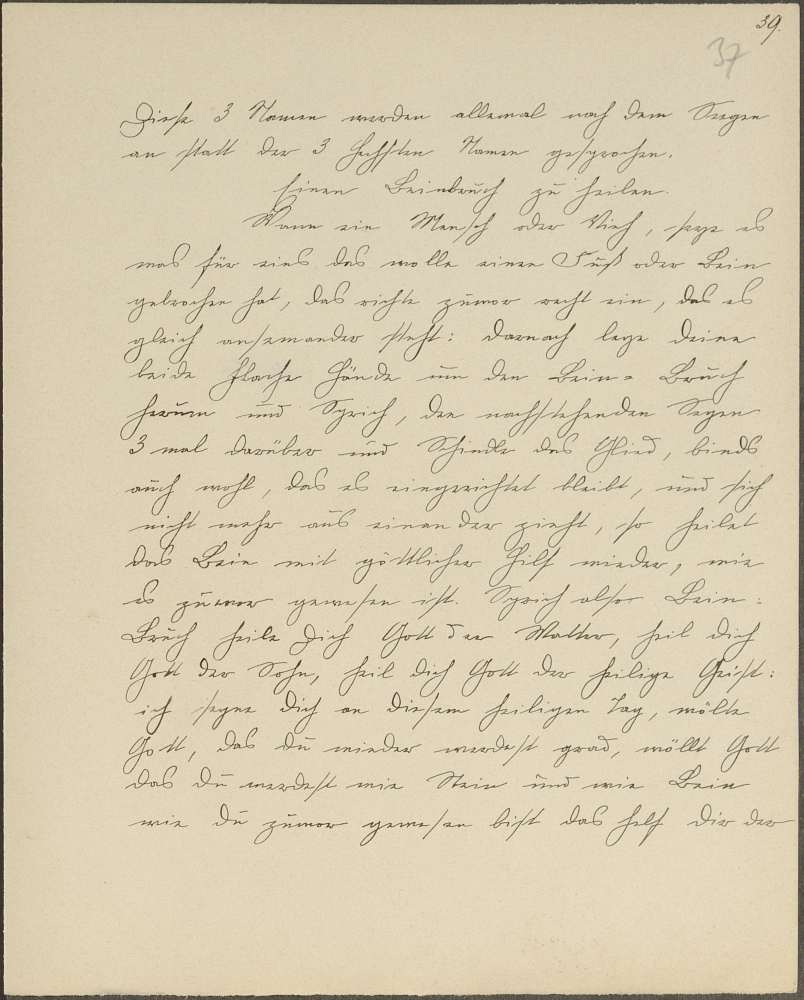 39.
37
Diese 3 Namen werden allemal nach dem Seegen
an statt der 3 höchsten Namen gesprochen.
Einen Beinbruch zu heilen.
Wann ein Mensch oder Vieh, seye es
was für eins das wolle einen Fuß oder Bein
gebrochen hat, das richte zuvor recht ein, das es
gleich aufeinander steht: darnach lege deine
beide flache Hände um den Bein= Bruch
herum und Sprich, den nachstehenden Segen
3 mal darüber und Schindle das Glied, binds
auch wohl, das es eingerichtet bleibt, und sich
nicht mehr aus einander zieht, so heilet
das Bein mit göttlicher Hilf wieder, wie
es zuvor gewesen ist. Sprich also Bein=
Bruch heile Dich Gott der Vatter, heil dich
Gott der Sohn, heil dich Gott der heilige Geist:
ich segne dich an diesem heiligen Tag, wölle
Gott, das du wieder werdest grad, wöllt Gott
das du werdest wie Stein und wie Bein
wie du zuvor gewesen bist das helf dir der